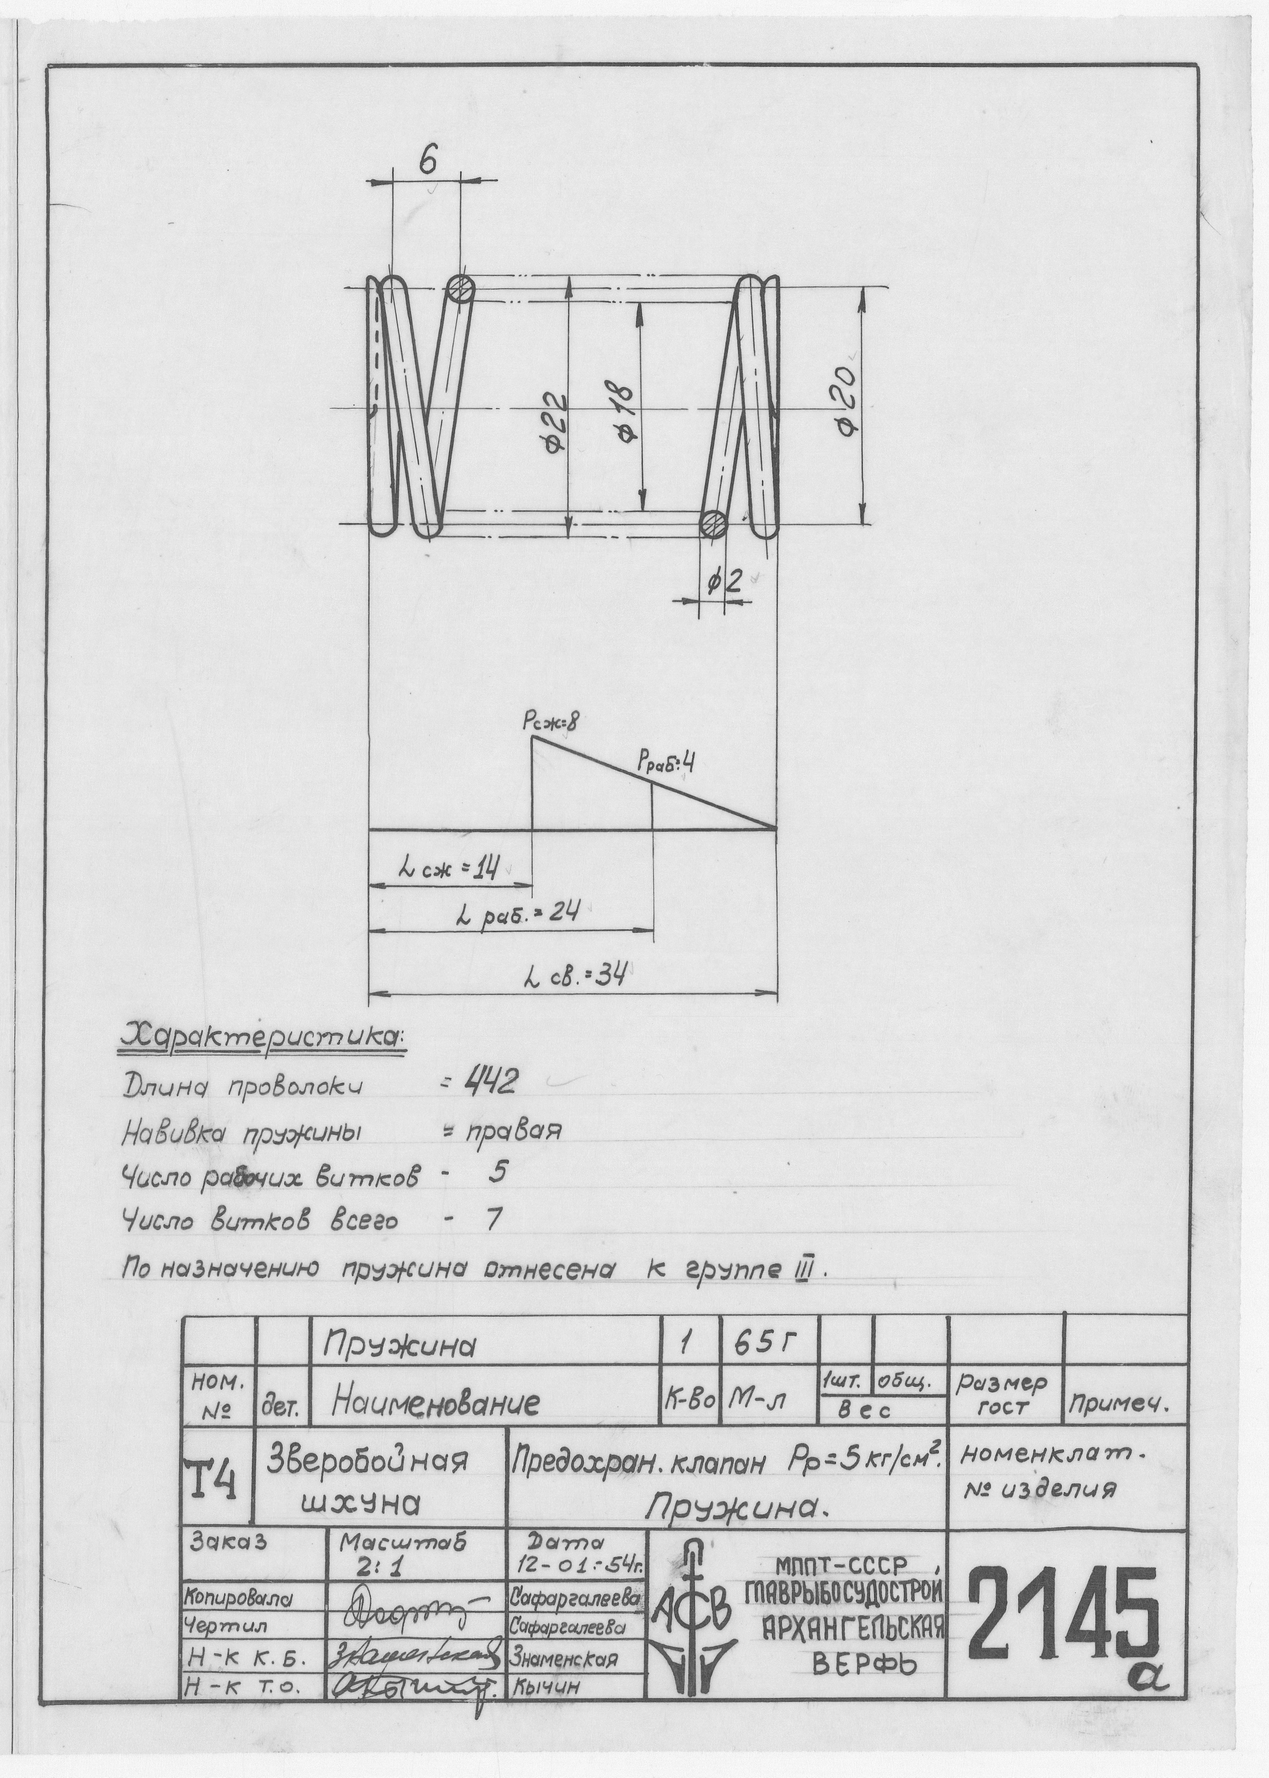 6
ϕ22
ϕ18
ϕ20
ϕ2
Pсж=8
Pраб=4
L сж =14
L раб.= 24
L св.=34
Характеристика:
Длина проволоки = 442
Навивка пружины = правая
Число рабочих витков - 5
Число витков всего - 7
По назначению пружина отнесена к группе III.
Пружина 1 65Г
ном. № дет. Наименование К-во М-л 1шт. общ. Вес размер гост примеч.
Т4
Зверобойная
шхуна
Предохран. клапан Рр=5кг/см².
Пружина.
номенклат.
№ изделия
Заказ
Масштаб
2:1
Дата
12-01-54г.
Копировала Сафаргалеева
Чертил Сафаргалеева
Н-к К.Б. Знаменская
Н-к т.о. Кычин
АСВ
МППТ-СССР,
ГЛАВРЫБОСУДОСТРОЙ
АРХАНГЕЛЬСКАЯ
ВЕРФЬ
2145а